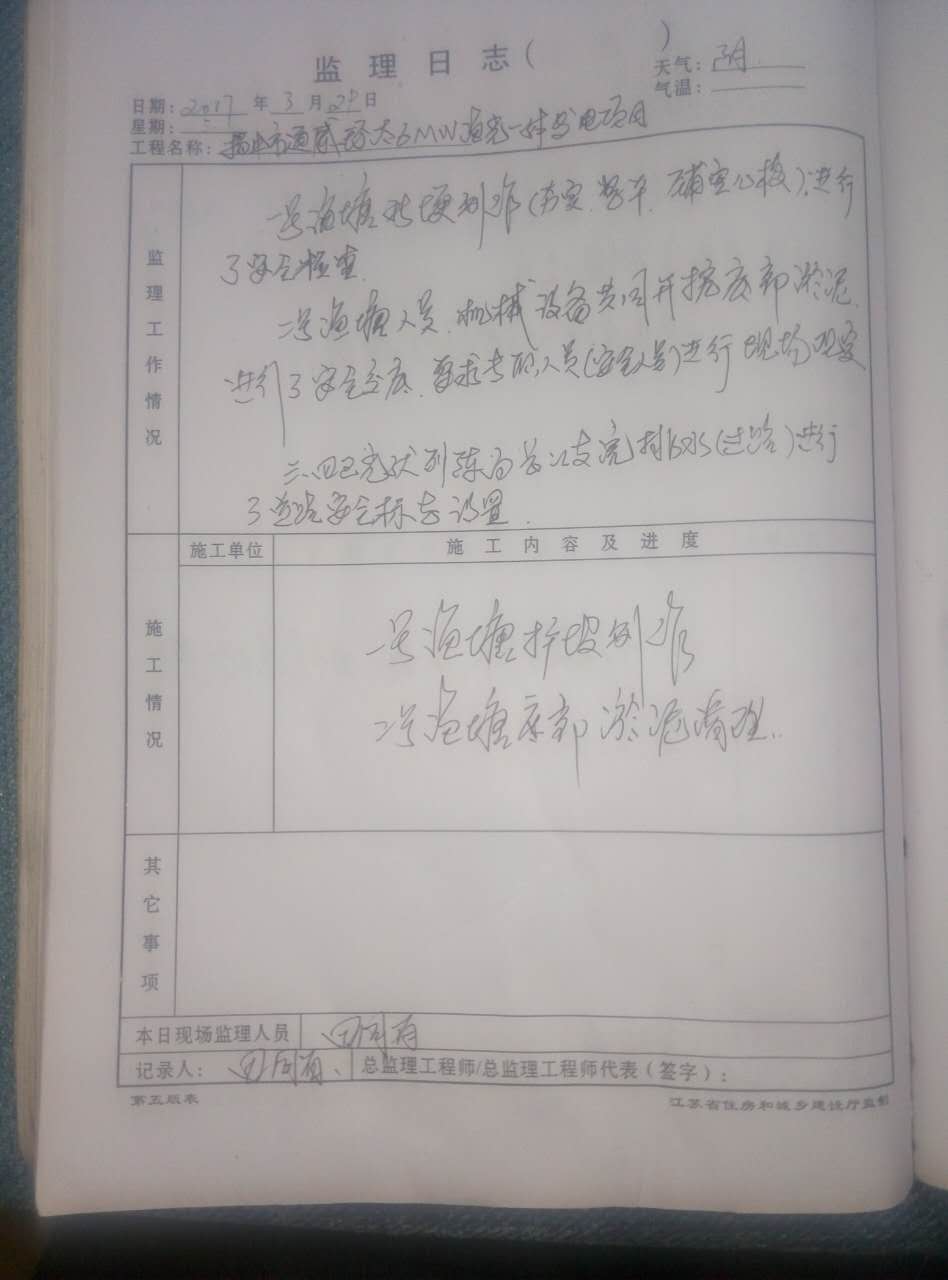 监理日志( )
天气:阴
气温:
日期:2017年3月29日
星期:
工程名称:扬中市通威 6MW渔光一体发电项目
监理工作情况
一号渔塘 (夯实.整平.铺空心板)进行
了安全检查.
二号渔塘人员.机械设备共同开挖底部淤泥.
进行了安全交底.要求专职人员(安全员)进行现场观察
三.四 排水(过路)进行
了道路安全标志设置.
施工情况
施工单位
施工内容及进度
一号渔塘护坡制作
二号渔塘底部淤泥清理.
其它事项
本日现场监理人员
记录人:
总监理工程师/总监理工程师代表(签字):
第五版表
江苏省住房和城乡建设厅监制